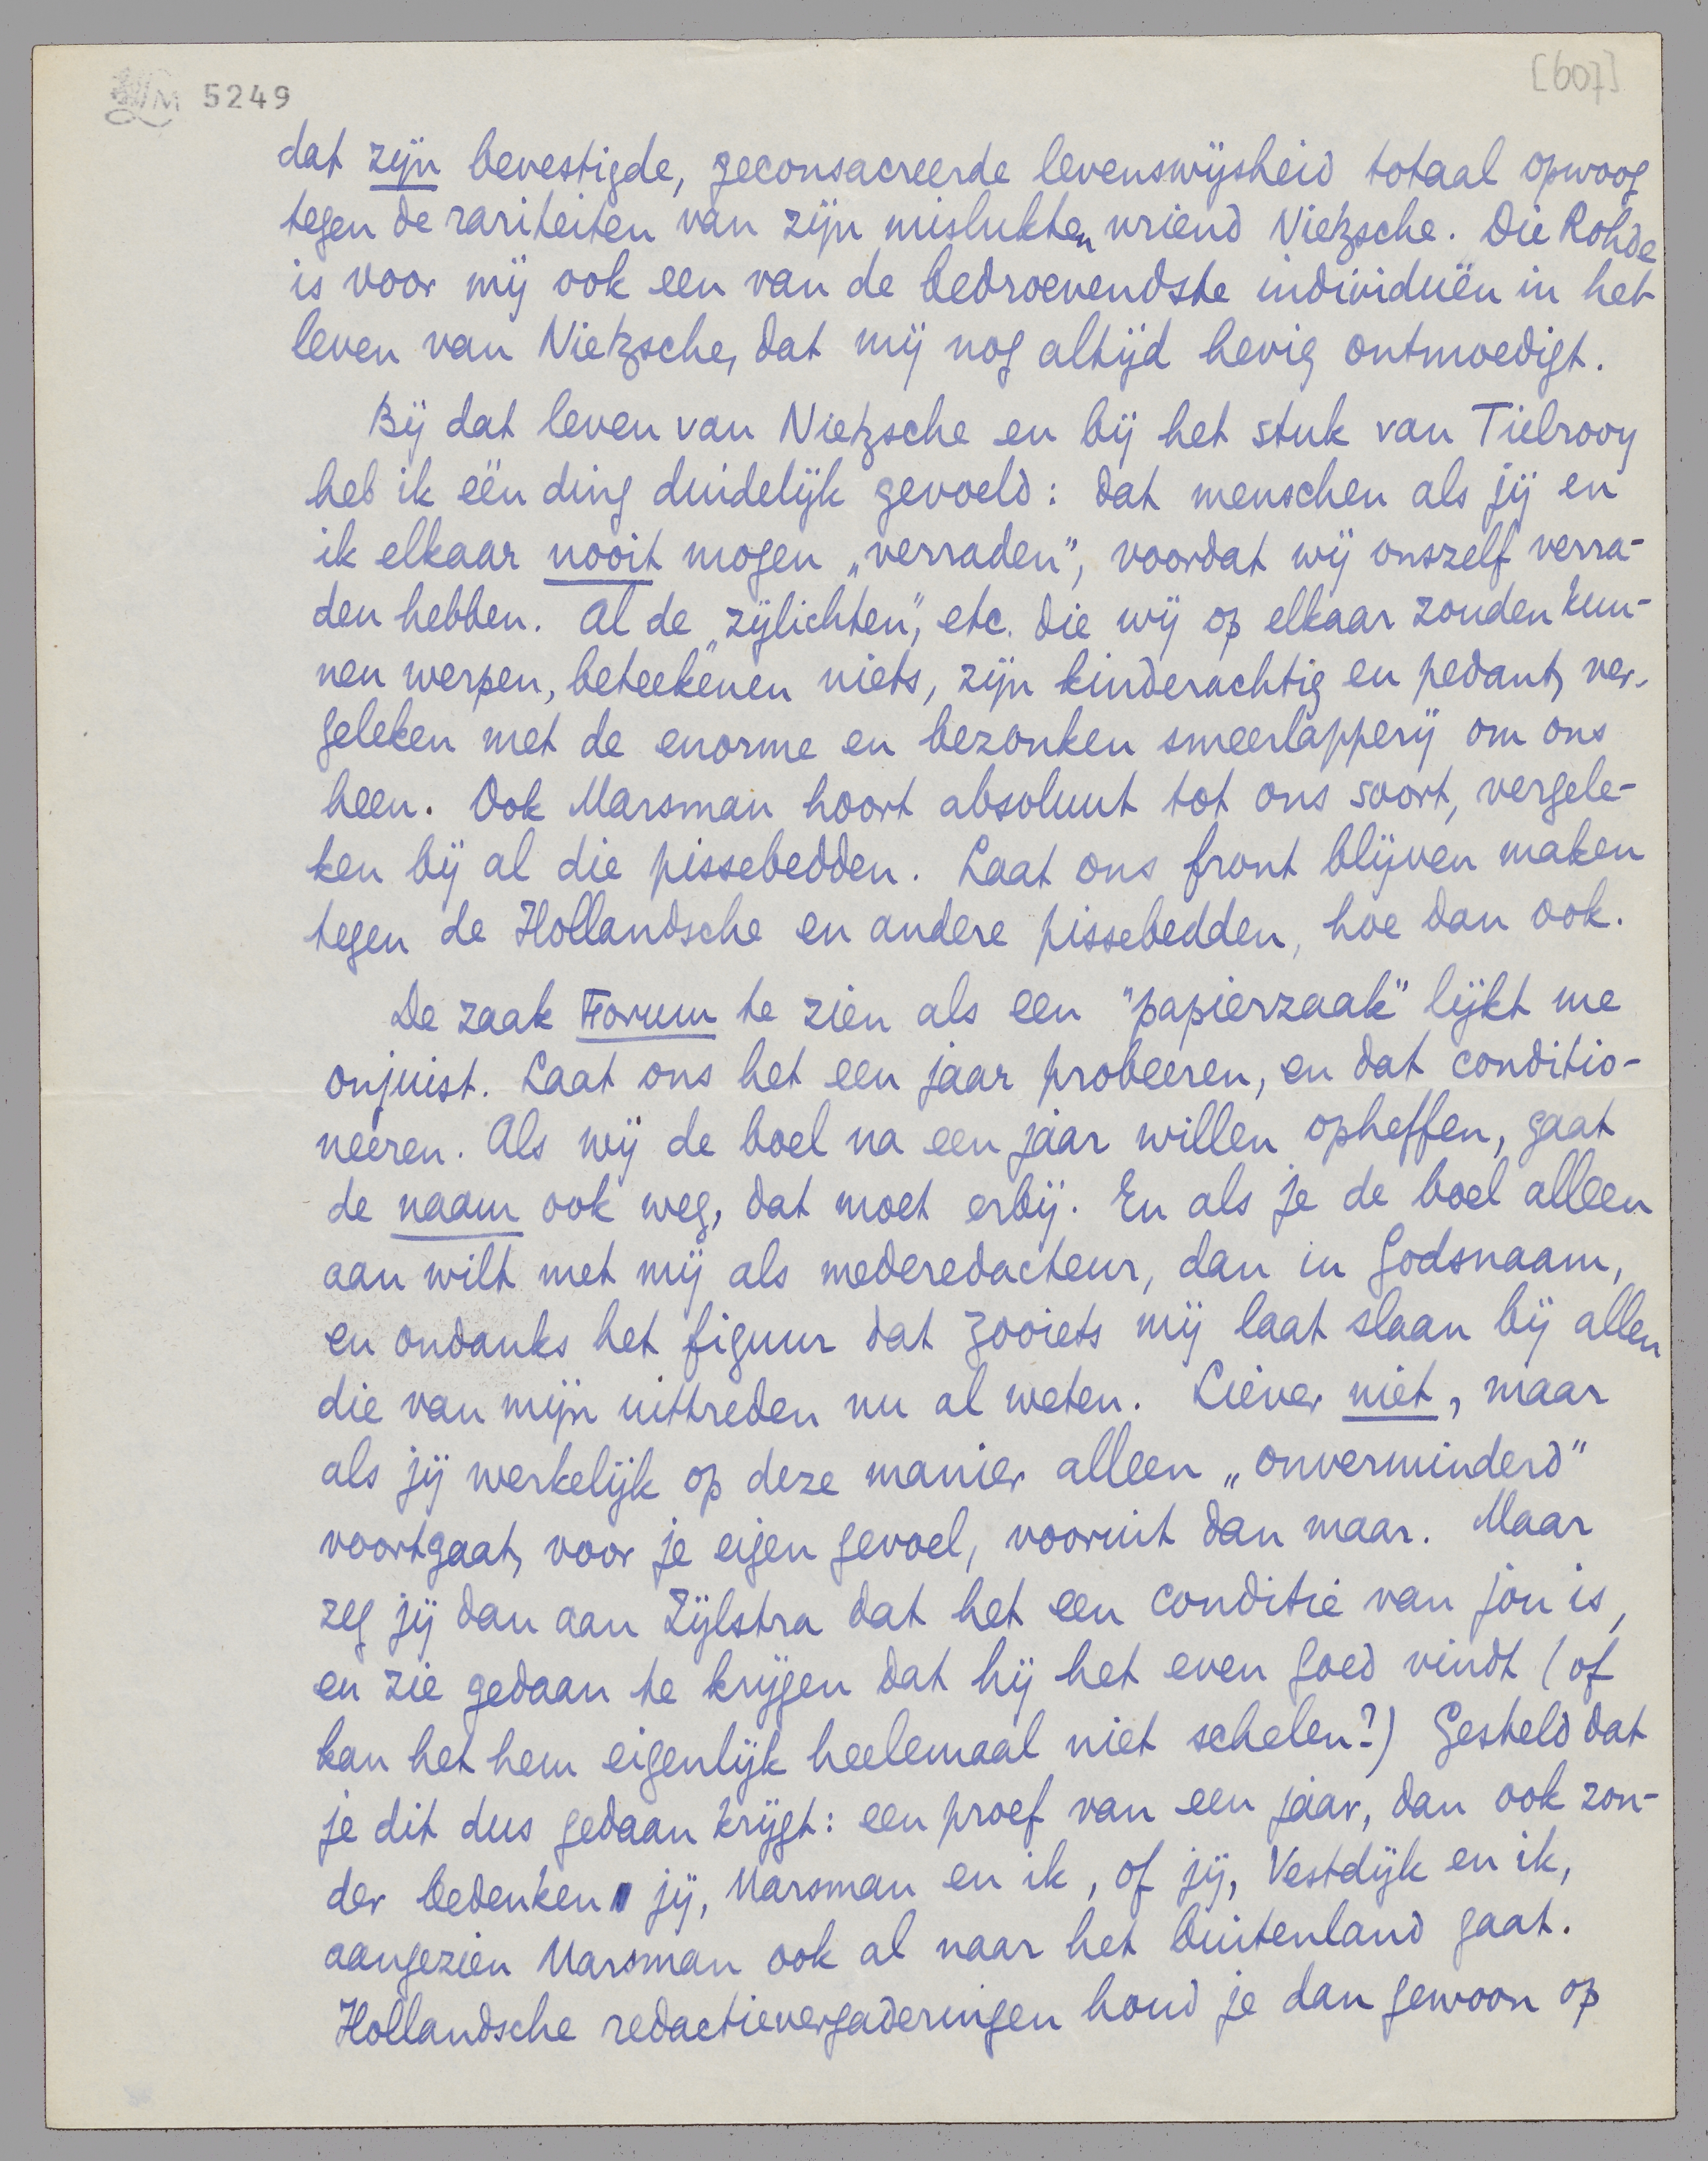 LM 5249
[607]
dat zijn bevestigde, geconsacreerde levenswijsheid totaal opwoog
tegen de rariteiten van zijn mislukten vriend Nietzsche. Die Rohde
is voor mij ook een van de bedroevendste individuën in het
leven van Nietzsche, dat mij nog altijd hevig ontmoedigt.
Bij dat leven van Nietzsche en bij het stuk van Tielrooy
heb ik één ding duidelijk gevoeld: dat menschen als jij en
ik elkaar nooit mogen „verraden", voordat wij onszelf verra-
den hebben. Al de „zijlichten", etc. die wij op elkaar zouden kun-
nen werpen, beteekenen niets, zijn kinderachtig en pedant, ver-
geleken met de enorme en bezonken smeerlapperij om ons
heen. Ook Marsman hoort absoluut tot ons soort, vergele-
ken bij al die pissebedden. Laat ons front blijven maken
tegen de Hollandsche en andere pissebedden, hoe dan ook.
De zaak Forum te zien als een "papierzaak" lijkt me
onjuist. Laat ons het een jaar probeeren, en dat conditio-
neeren. Als wij de boel na een jaar willen opheffen, gaat
de naam ook weg, dat moet erbij. En als je de boel alleen
aan wilt met mij als mederedacteur, dan in Godsnaam,
en ondanks het figuur dat zooiets mij laat slaan bij allen
die van mijn uittreden nu al weten. Liever niet, maar
als jij werkelijk op deze manier alleen „onverminderd"
voortgaat, voor je eigen gevoel, vooruit dan maar. Maar
zeg jij dan aan Zijlstra dat het een conditie van jou is,
en zie gedaan te krijgen dat hij het even goed vindt (of
kan het hem eigenlijk heelemaal niet schelen?) Gesteld dat
je dit dus gedaan krijgt: een proef van een jaar, dan ook zon-
der bedenken jij, Marsman en ik, of jij, Vestdijk en ik,
aangezien Marsman ook al naar het buitenland gaat.
Hollandsche redactievergaderingen houd je dan gewoon op